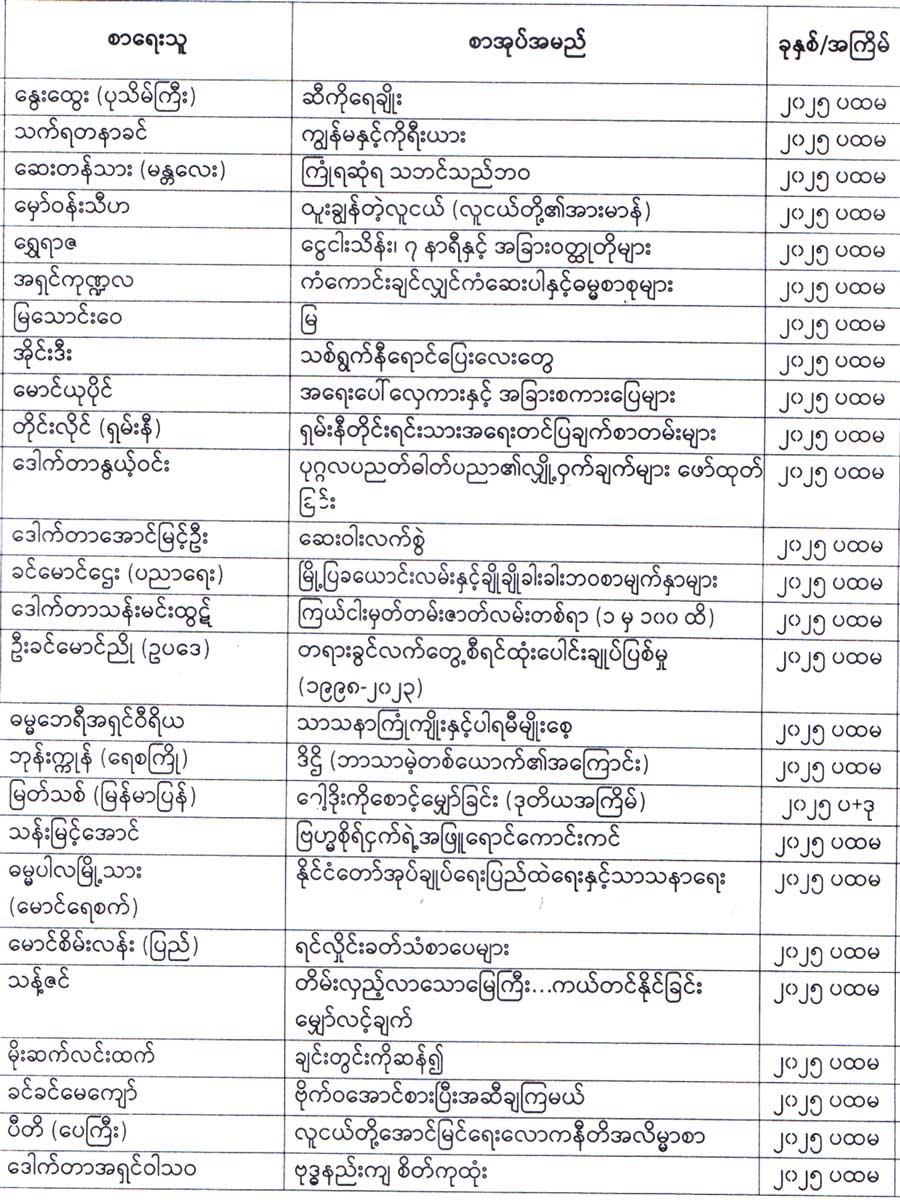 စာရေးသူ စာအုပ်အမည် ခုနှစ်/အကြိမ်
နွေးထွေး (ပုသိမ်ကြီး) ဆီကိုရေချိုး ၂၀၂၅ ပထမ
သက်ရတနာခင် ကျွန်မနှင့်ကိုရီးယား ၂၀၂၅ ပထမ
ဆေးတန်သား (မန္တလေး) ကြုံရဆုံရ သဘင်သည်ဘဝ ၂၀၂၅ ပထမ
မှော်ဝန်းသီဟ ထူးချွန်တဲ့လူငယ် (လူငယ်တို့၏အားမာန်) ၂၀၂၅ ပထမ
ရွှေရာဇ ငွေငါးသိန်း၊ ၇ နာရီနှင့် အခြားဝတ္ထုတိုများ ၂၀၂၅ ပထမ
အရှင်ကုဏ္ဍလ ကံကောင်းချင်လျှင်ကံဆေးပါနှင့်ဓမ္မစာစုများ ၂၀၂၅ ပထမ
မြသောင်းဝေ မြ ၂၀၂၅ ပထမ
အိုင်းဒီး သစ်ရွက်နီရောင်ပြေးလေးတွေ ၂၀၂၅ ပထမ
မောင်ယုပိုင် အရေးပေါ်လှေကားနှင့် အခြားစကားပြေများ ၂၀၂၅ ပထမ
တိုင်းလိုင် (ရှမ်းနီ) ရှမ်းနီတိုင်းရင်းသားအရေးတင်ပြချက်စာတမ်းများ ၂၀၂၅ ပထမ
ဒေါက်တာနွယ့်ဝင်း ပုဂ္ဂလပညတ်ဓါတ်ပညာ၏လျှို့ဝှက်ချက်များ ဖော်ထုတ် ၂၀၂၅ ပထမ
ခြင်း
ဒေါက်တာအောင်မြင့်ဦး ဆေးဝါးလက်စွဲ ၂၀၂၅ ပထမ
ခင်မောင်ဌေး (ပညာရေး) မြို့ပြခယောင်းလမ်းနှင့်ချိုချိုခါးခါးဘဝစာမျက်နှာများ ၂၀၂၅ ပထမ
ဒေါက်တာသန်းမင်းထွဋ် ကြယ်ငါးမှတ်တမ်းဇာတ်လမ်းတစ်ရာ (၁ မှ ၁၀၀ ထိ) ၂၀၂၅ ပထမ
ဦးခင်မောင်ညို (ဥပဒေ) တရားခွင်လက်တွေ့စီရင်ထုံးပေါင်းချုပ်ပြစ်မှု ၂၀၂၅ ပထမ
(၁၉၉၈-၂၀၂၃)
ဓမ္မဘေရီအရှင်ဝီရိယ သာသနာကြုံကျိုးနှင့်ပါရမီမျိုးစေ့ ၂၀၂၅ ပထမ
ဘုန်းက္ကုန် (ရေစကြို) ဒိဋ္ဌိ (ဘာသာမဲ့တစ်ယောက်၏အကြောင်း) ၂၀၂၅ ပထမ
မြတ်သစ် (မြန်မာပြန်) ဂေါ့ဒိုးကိုစောင့်မျှော်ခြင်း (ဒုတိယအကြိမ်) ၂၀၂၅ ပ+ဒု
သန်းမြင့်အောင် ဗြဟ္မစိုရ်ငှက်ရဲ့အဖြူရောင်ကောင်းကင် ၂၀၂၅ ပထမ
ဓမ္မပါလမြို့သား နိုင်ငံတော်အုပ်ချုပ်ရေးပြည်ထဲရေးနှင့်သာသနာရေး ၂၀၂၅ ပထမ
(မောင်ရေစက်)
မောင်စိမ်းလန်း (ပြည်) ရင်လှိုင်းခတ်သံစာပေများ ၂၀၂၅ ပထမ
သန့်ဇင် တိမ်းလှည့်လာသောမြေကြီး...ကယ်တင်နိုင်ခြင်း ၂၀၂၅ ပထမ
မျှော်လင့်ချက်
မိုးဆက်လင်းထက် ချင်းတွင်းကိုဆန်၍ ၂၀၂၅ ပထမ
ခင်ခင်မေကျော် ဗိုက်ဝအောင်စားပြီးအဆီချကြမယ် ၂၀၂၅ ပထမ
ပီတိ (ပေကြီး) လူငယ်တို့အောင်မြင်ရေးလောကနီတိအလိမ္မာစာ ၂၀၂၅ ပထမ
ဒေါက်တာအရှင်ဝါသဝ ဗုဒ္ဓနည်းကျ စိတ်ကုထုံး ၂၀၂၅ ပထမ